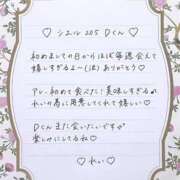 ♡ シエル 205 Dくん ♡
初めましての日からほぼ毎週会えて
嬉しすぎるよ〜(泣)ありがとう♡
アレ初めて食べた!美味しすぎるの
れいの為に用意してくれて嬉しい♡
Dくんまた会いたいですㅤ
楽しみにしてるね♡
♡ れい ♡